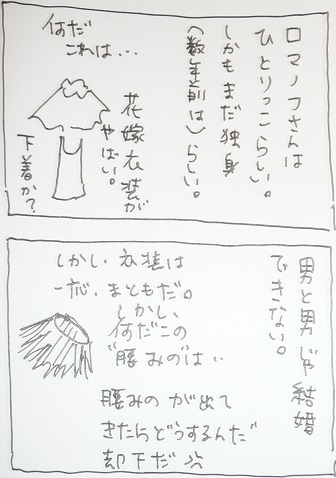 ロマノフさんは
ひとりっこらしい。
しかもまだ独身
(数年前は)らしい。
何だ
これは…
花嫁衣装が
やばい。
下着か?
男と男じゃ結婚
できない。
しかし衣装は
一応、まともだ。
しかし、
何だこの
"腰みの"は…
腰みのが出て
きたらどうするんだ
却下だ